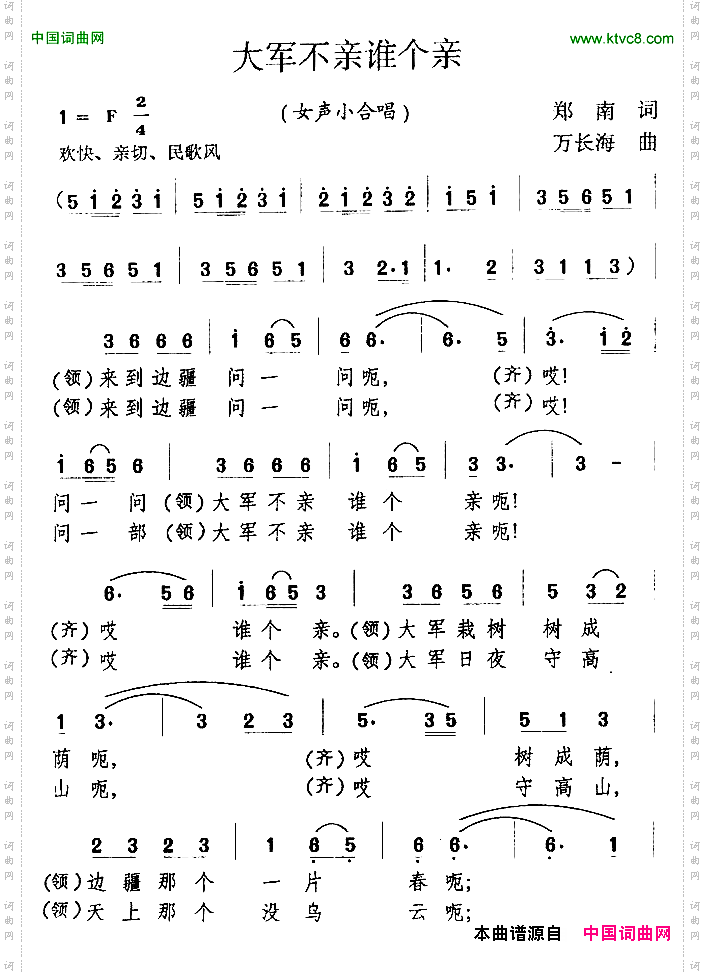 中国词曲网
www.ktvc8.com
大军不亲谁个亲
1= F 2/4
(女声小合唱)
郑南 词
欢快、亲切、民歌风
万长海 曲
(5 1 2 3 1 | 5 1 2 3 1 | 2 1 2 3 2 | 1 5 1 | 3 5 6 5 1
3 5 6 5 1 | 3 5 6 5 1 | 3 2·1 | 1· 2 | 3 1 1 3)
3 6 6 6 | 1 6 5 | 6 6· | 6· 5 | 3· 1 2
(领)来到边疆 问一 问呃, (齐)哎!
(领)来到边疆 问一 问呃, (齐)哎!
1 6 5 6 | 3 6 6 6 | 1 6 5 | 3 3· | 3 -
问一 问 (领)大军不亲 谁个 亲呃!
问一 部 (领)大军不亲 谁个 亲呃!
6· 5 6 | 1 6 5 3 | 3 6 5 6 | 5 3 2
(齐)哎 谁个 亲。(领)大军栽树 树成
(齐)哎 谁个 亲。(领)大军日夜 守高
1 3· | 3 2 3 | 5· 3 5 | 5 1 3
荫呃, (齐)哎 树成荫,
山呃, (齐)哎 守高山,
2 3 2 3 | 1 6 5 | 6 6· | 6· 1
(领)边疆那个 一片 春呃;
(领)天上那个 没鸟 云呃;
本曲谱源自 中国词曲网